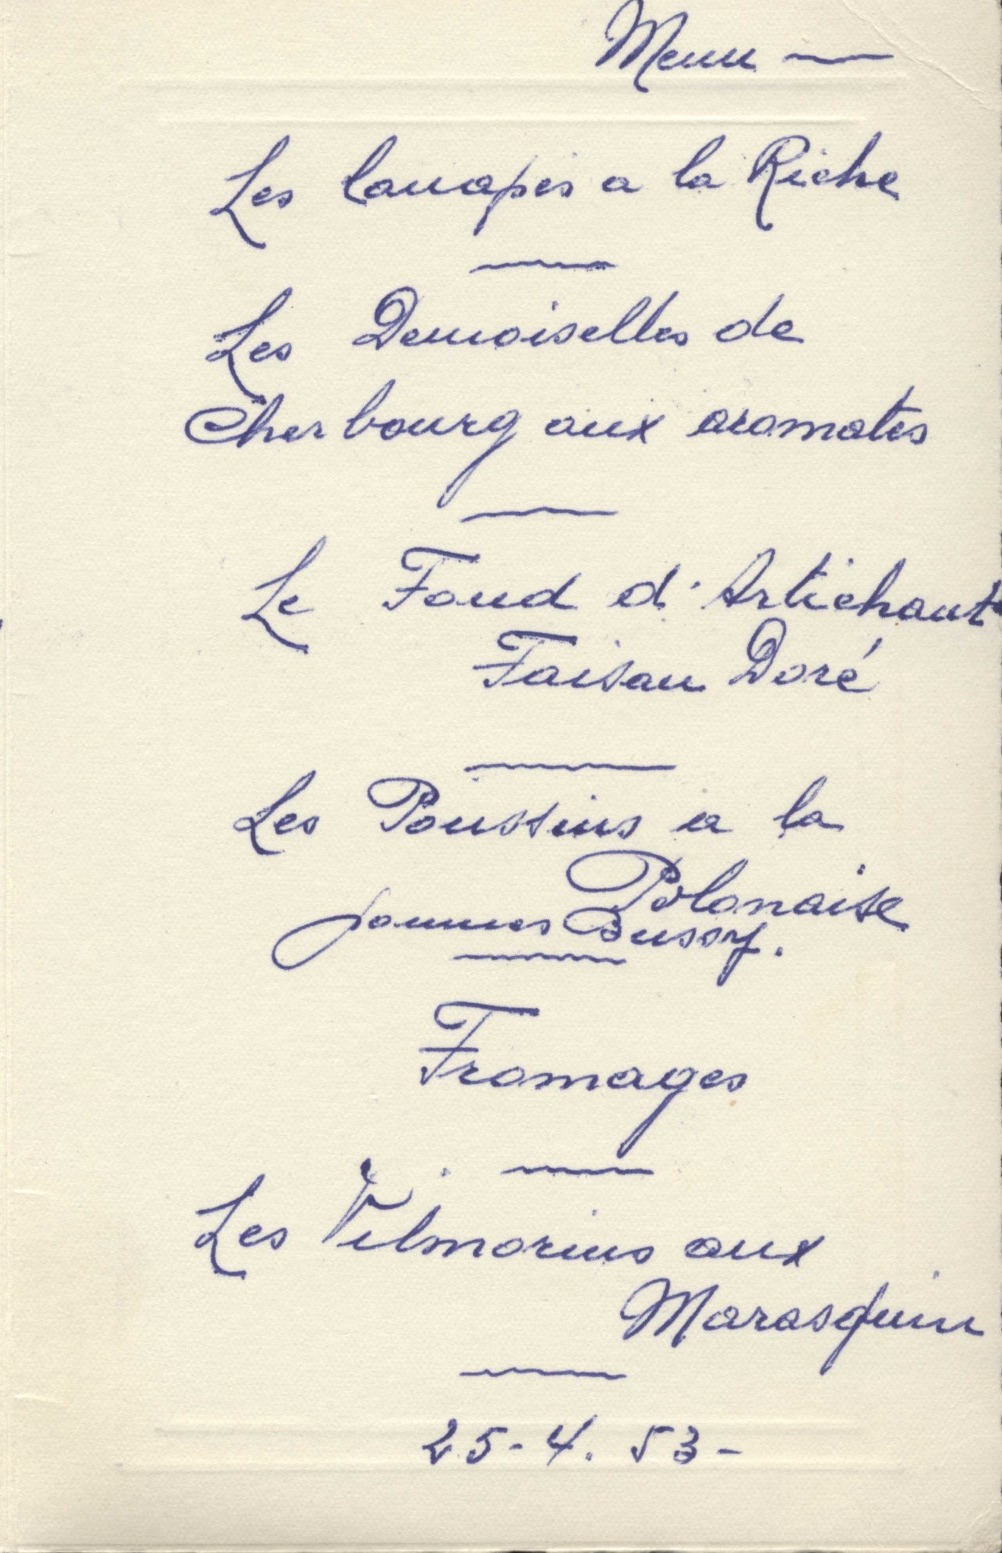 Menu —
Les Canapes a la Riche
Les Demoiselles de
Cherbourg aux aromates
Le Fond d'Artichaut
Faisan Doré
Les Poussins a la
Polonaise
Jommes Bussy.
Fromages
Les Vilmorins aux
Marasquin
25-4.53-